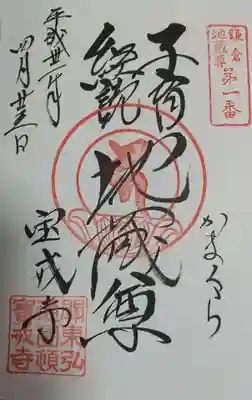 鎌倉
地蔵尊
第一番
かまくら
子育
経読
地蔵尊
宝戒寺
平成卅一年
四月廿三日
關東弘
頓
寶戒寺